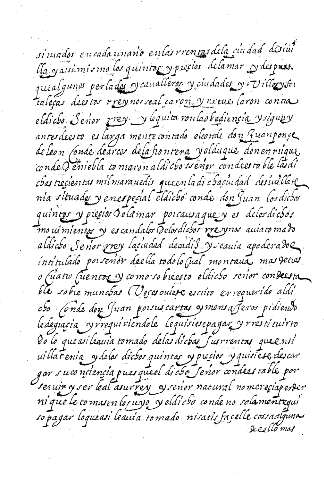 situados en cada un año en las rrentas dela ciudad de sivi
lla y assi mismo los quintos y prezios de la mar y despues
que algunos perlados y cavalleros y ciudades y Villas y for
talezas de estos rreynos se alçaron y rrevelaron contra
el dicho Señor Rrey y le quitaron la obediençia y segun y
antes desto es larga mente contado el conde don Juan ponçe
de leon conde de arcos de la frontera y el duque don enrrique
conde de niebla tomaron al dicho señor condestable las di
chas trecientas mil maravedis que en la dicha ciudad de sivilla te
nia situados y en especial el dicho conde don Juan los dichos
quintos y prezios de la mar por causa que y es de los dichos
movimientos y escandalos de los dichos rreynos avia tomado
al dicho Señor Rrey la ciudad de cadiz y se avia apoderado e
intitulado por señor de ella todo lo qual montava mas de tres
o quatro cuentos y como sobre esto el dicho señor condesta
ble sobre munchas Vezes oviese escrito e rrequerido al di
cho conde don Juan por sus cartas y mensageros pidiendo
le de gracia y rrequiriendole le quisiese pagar y rrestituir to
do lo que assi le avia tomado de las dichas sus rrentas que en si
villa tenia y de los dichos quintos y prezios y quisiese descar
gar su conciencia pues que el dicho Señor condestable por
servir y ser leal a su rrey y señor natural no merecia perder
ni que le tomasen lo suyo y el dicho conde no solamente qui
so pagar lo que assi le avia tomado ni satisfacelle cossa alguna
de ello mas